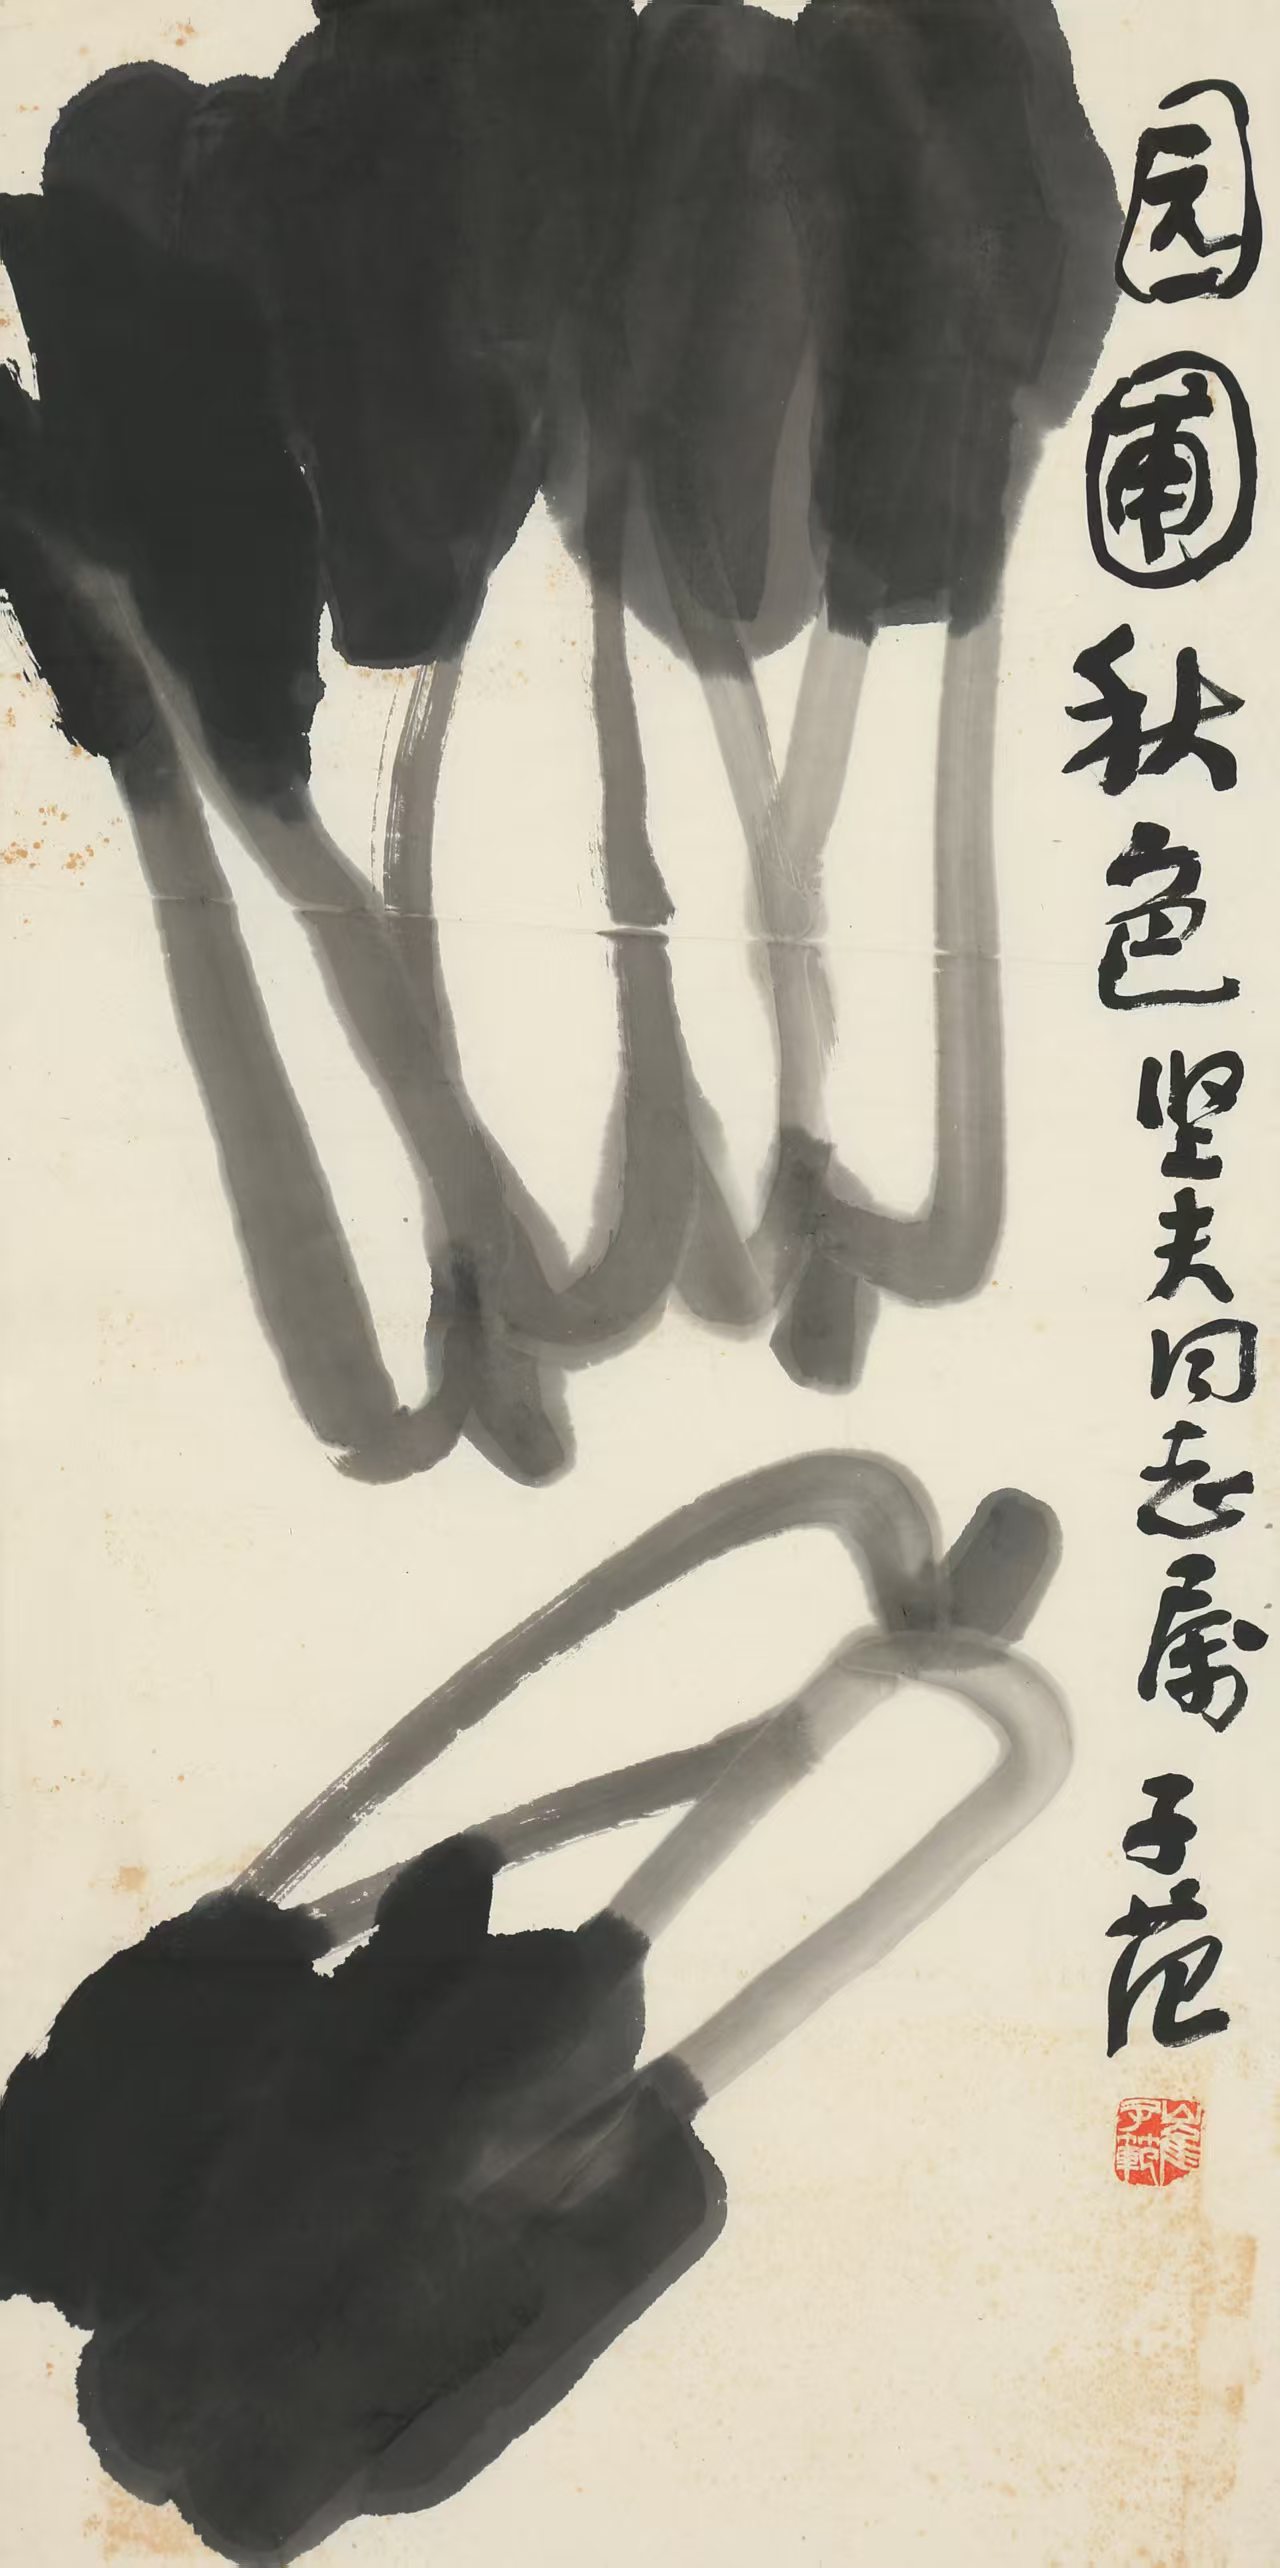 园圃秋色坚夫同志属子范
崔子範